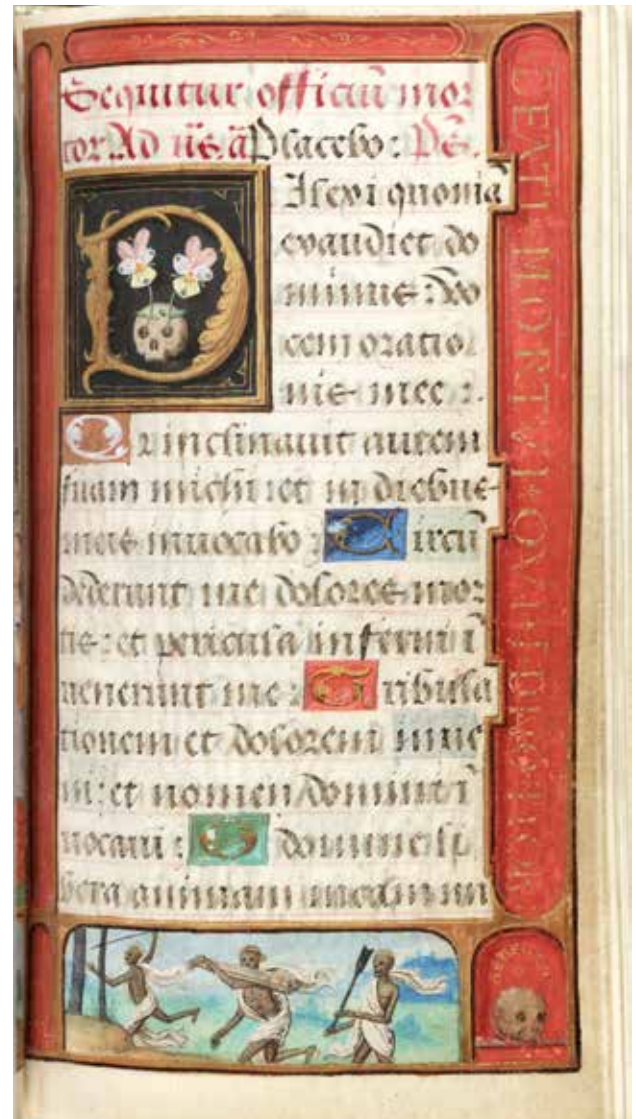 Sequitur officiū mor
tor Ad ūs. ā Placebo: Ps.
Dilexi quoniā
exaudiet do
minus: vo
cem oratio
nis mee :.
Qr inclinauit aurem
suam michi: et in diebus
meis inuocabo: Circū
dederunt me dolores mor
tis: et pericula inferni ī
uenerunt me: Tribula
tionem et dolorem inue
ni: et nomen domini ī
uocaui: O domine li
bera animam meam mi
BEATI MORTVI QVI I